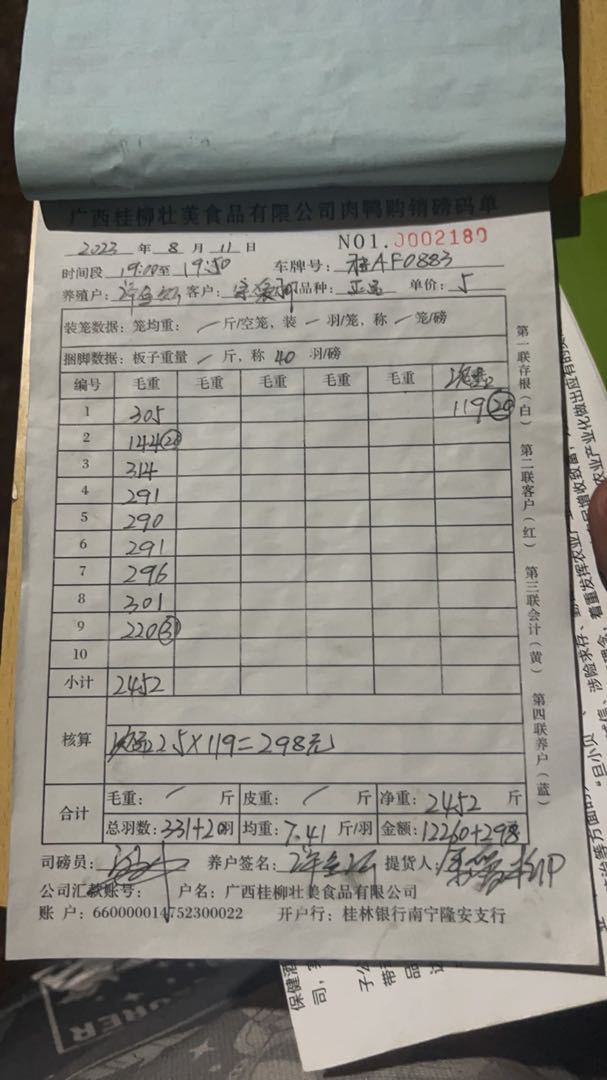 广西桂柳壮美食品有限公司肉鸭购销磅码单
2023 年 8 月 11 日 NO1.0002180
时间段 19:00至 19:50 车牌号: 桂AF0883
养殖户: 客户: 品种: 正品 单价: 5
装笼数据: 笼均重: / 斤/空笼, 装 / 羽/笼, 称 / 笼/磅
捆脚数据: 板子重量 / 斤, 称 40 羽/磅
编号 毛重 毛重 毛重 毛重 毛重
1 305 119 20
2 144 20
3 314
4 291
5 290
6 291
7 296
8 301
9 220 31
10
小计 2452
核算 2.5×119=298元
合计 毛重: / 斤 皮重: / 斤 净重: 2452 斤
总羽数: 331+20羽 均重: 7.41 斤/羽 金额: 12260+298
司磅员: 养户签名: 提货人:
公司汇款账号: 户名: 广西桂柳壮美食品有限公司
账 户: 660000014752300022 开户行: 桂林银行南宁隆安支行
第一联存根(白) 第二联客户(红) 第三联会计(黄) 第四联养户(蓝)